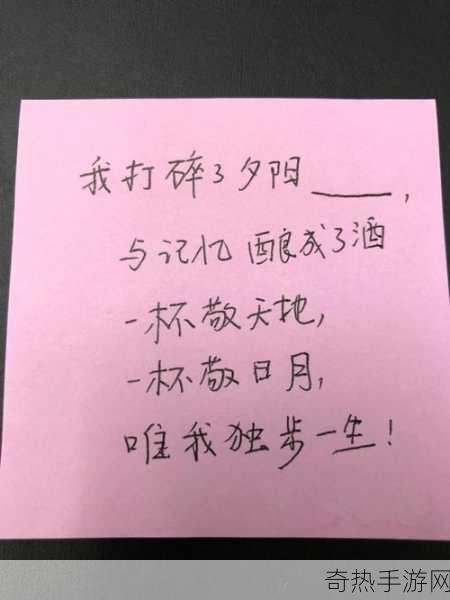 我打碎了夕阳____,
与记忆酿成了酒
一杯敬天地,
一杯敬日月,
唯我独步一生!
奇热手游网